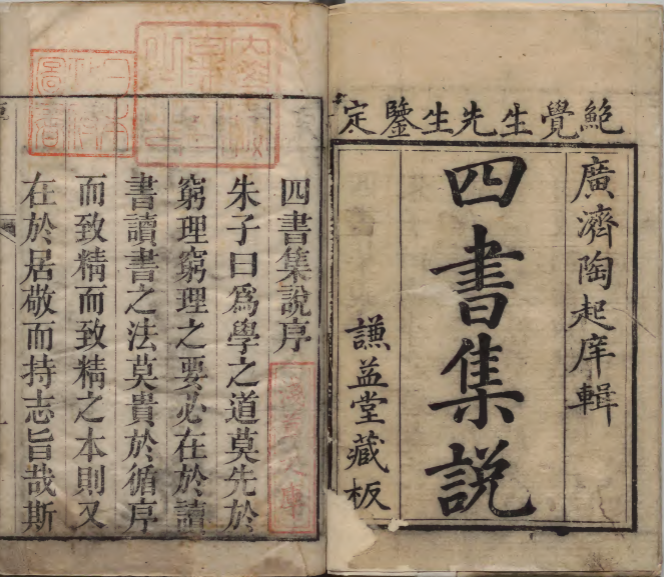 鮑覺生先生鑒定
廣濟陶起庠輯
四書集說
謙益堂藏板
四書集說序
朱子曰爲學之道莫先於
窮理窮理之要必在於讀
書讀書之法莫貴於循序
而致精而致精之本則又
在於居敬而持志旨哉斯